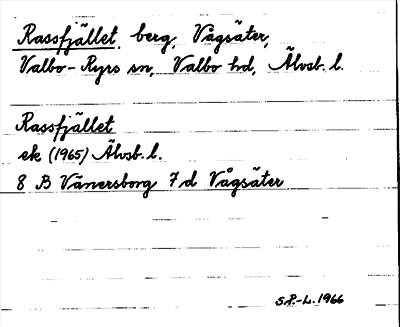 Rassfjället, berg, Vågsäter,
Valbo-Ryrs sn, Valbo hd, Älvsb. l.
Rassfjället
ek (1965) Älvsb. l.
8 B Vänersborg 7d Vågsäter
S.P.-L. 1966